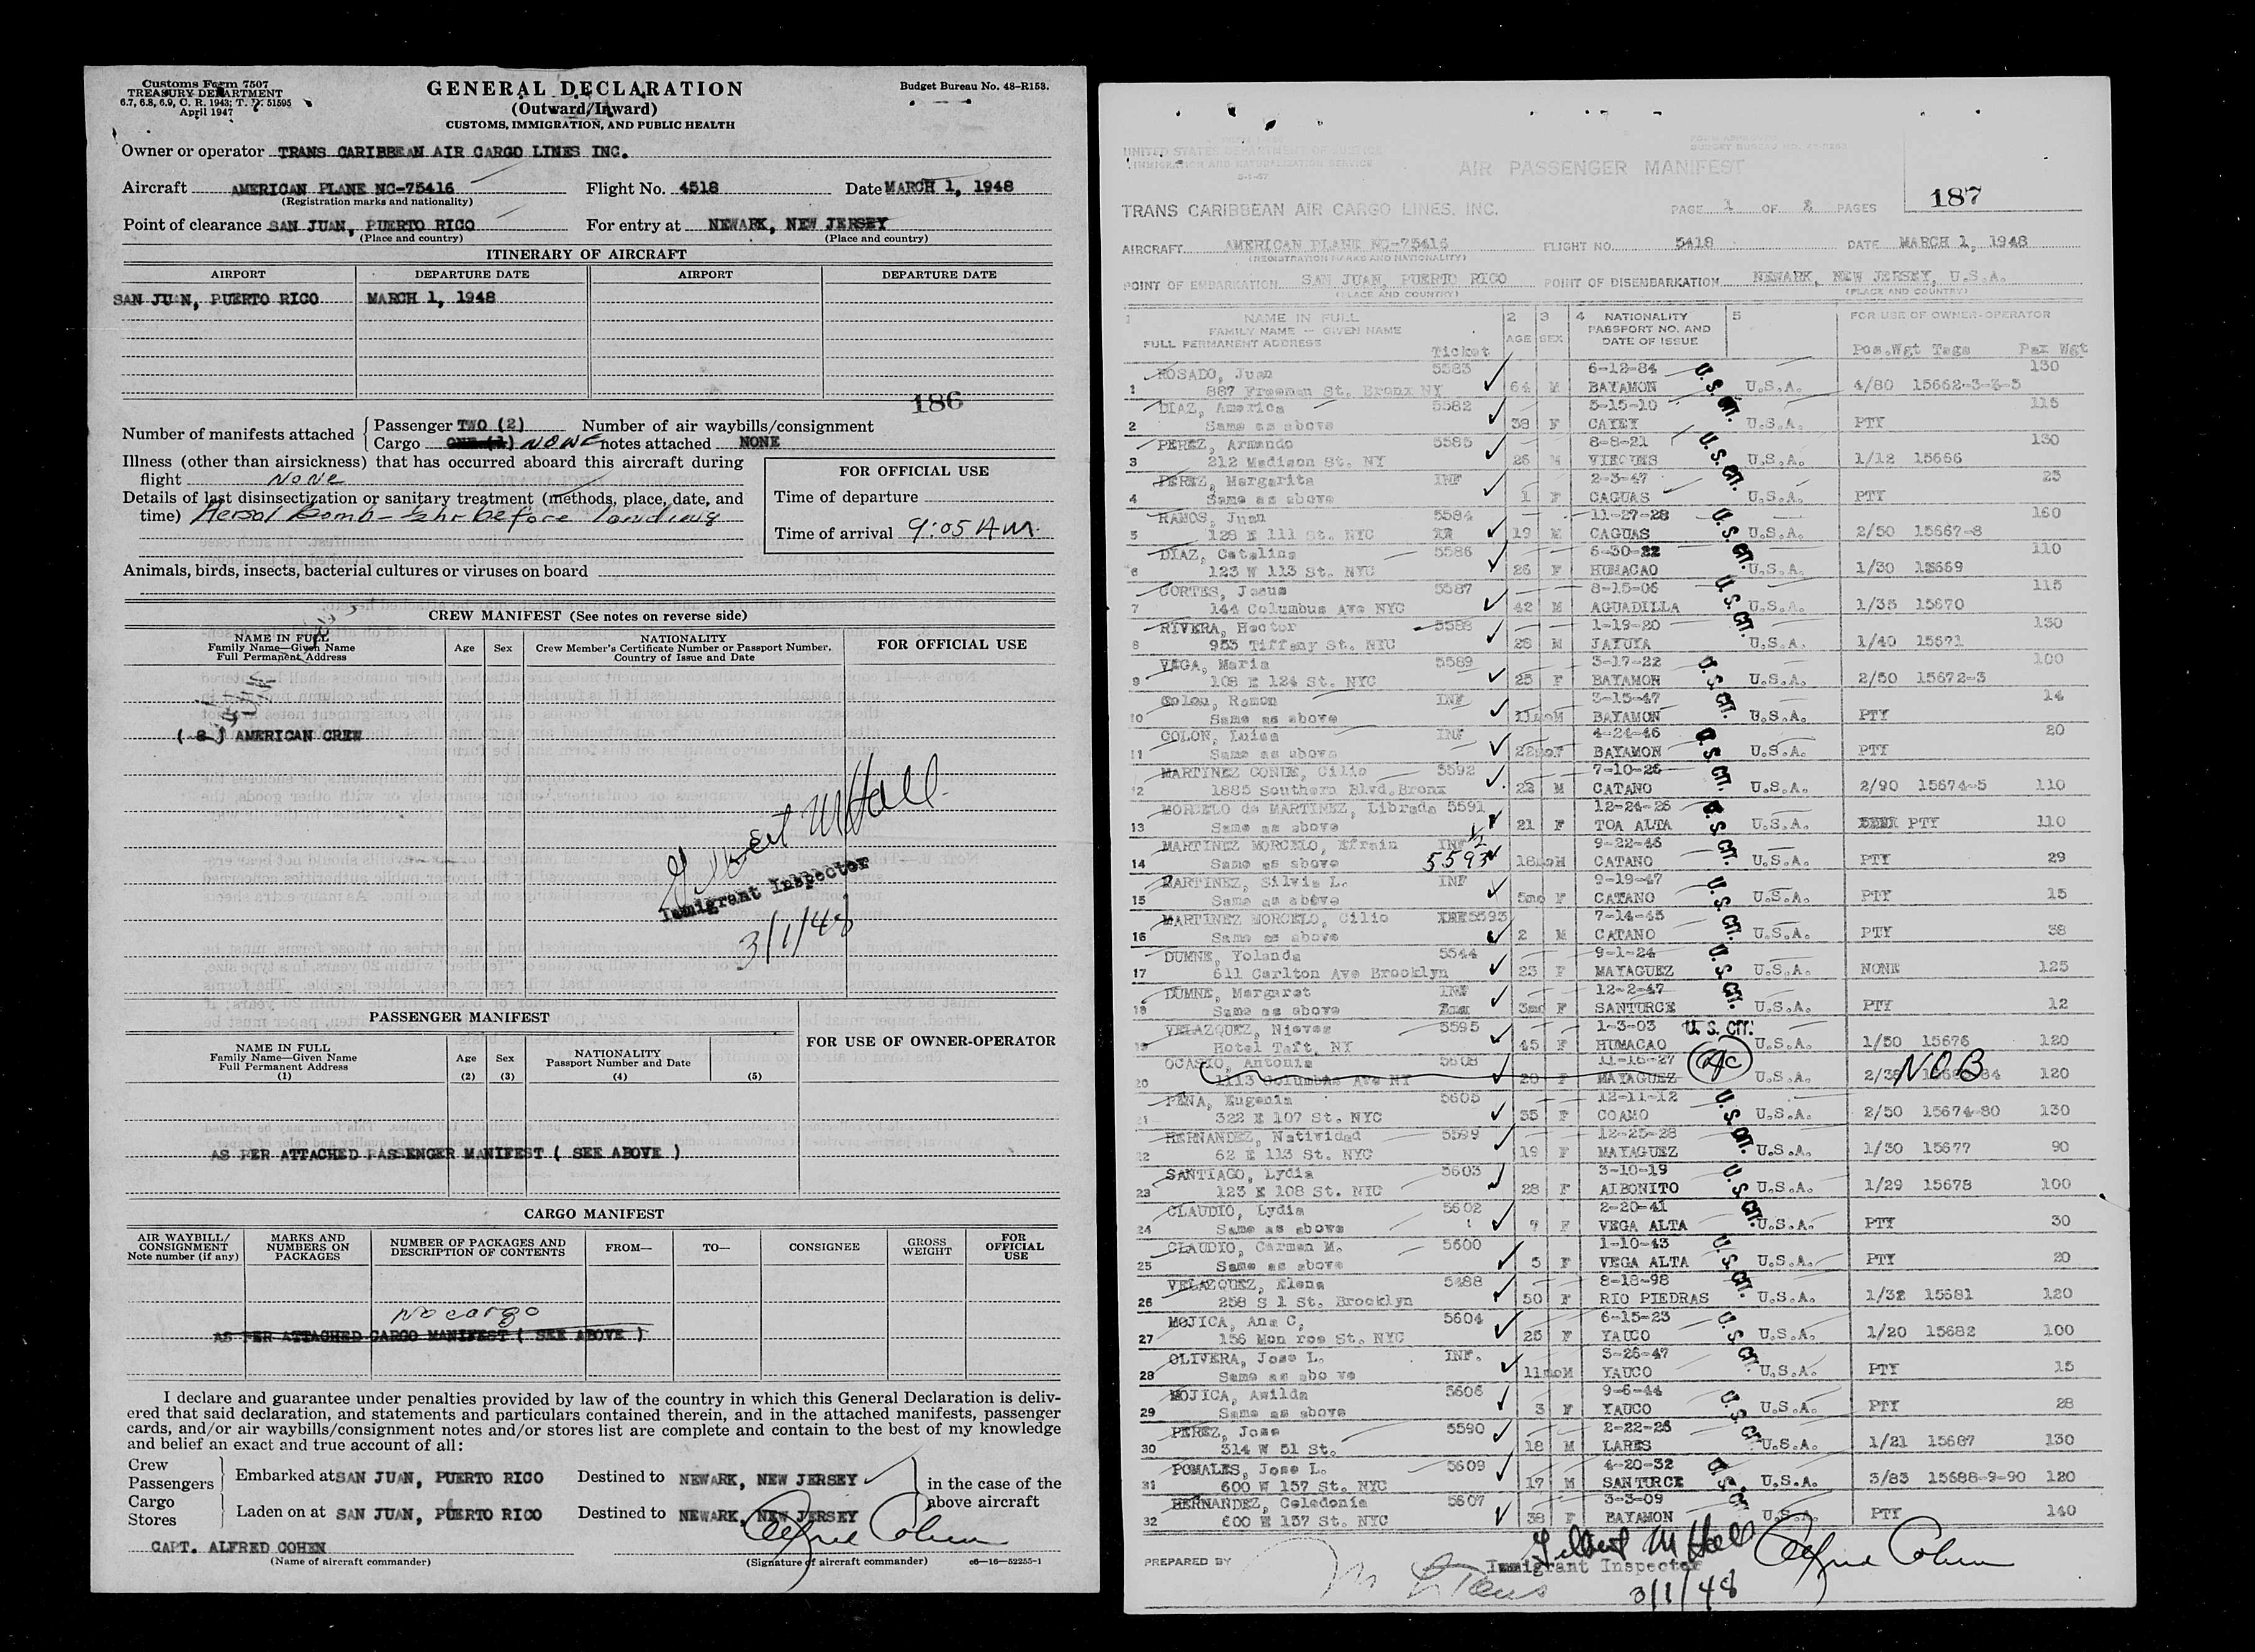 Customs Form 7507
TREASURY DEPARTMENT
6.7, 6.8, 6.9, C. R. 1943; T. D. 51595
April 1947
GENERAL DECLARATION
(Outward/Inward)
CUSTOMS, IMMIGRATION, AND PUBLIC HEALTH
Budget Bureau No. 48-R153.
Owner or operator TRANS CARIBBEAN AIR CARGO LINES INC.
Aircraft AMERICAN PLANE NC-75416 Flight No. 4518 Date MARCH 1, 1948
(Registration marks and nationality)
Point of clearance SAN JUAN, PUERTO RICO For entry at NEWARK, NEW JERSEY
(Place and country) (Place and country)
ITINERARY OF AIRCRAFT
AIRPORT DEPARTURE DATE AIRPORT DEPARTURE DATE
SAN JUAN, PUERTO RICO MARCH 1, 1948
186
Number of manifests attached
Passenger TWO (2) Number of air waybills/consignment
Cargo ONE (1) NONE notes attached NONE
Illness (other than airsickness) that has occurred aboard this aircraft during
flight None
Details of last disinsectization or sanitary treatment (methods, place, date, and
time) Aersol Bomb - ½ hr before landing
FOR OFFICIAL USE
Time of departure
Time of arrival 9:05 AM.
Animals, birds, insects, bacterial cultures or viruses on board
CREW MANIFEST (See notes on reverse side)
NAME IN FULL
Family Name—Given Name
Full Permanent Address
Age Sex
NATIONALITY
Crew Member's Certificate Number or Passport Number,
Country of Issue and Date
FOR OFFICIAL USE
( 8 ) AMERICAN CREW
Gilbert M Hall
Immigrant Inspector
3/1/48
PASSENGER MANIFEST
NAME IN FULL
Family Name—Given Name
Full Permanent Address
(1)
Age
(2)
Sex
(3)
NATIONALITY
Passport Number and Date
(4)
(5)
FOR USE OF OWNER-OPERATOR
AS PER ATTACHED PASSENGER MANIFEST ( SEE ABOVE )
CARGO MANIFEST
AIR WAYBILL/
CONSIGNMENT
Note number (if any)
MARKS AND
NUMBERS ON
PACKAGES
NUMBER OF PACKAGES AND
DESCRIPTION OF CONTENTS
FROM— TO— CONSIGNEE
GROSS
WEIGHT
FOR
OFFICIAL
USE
No cargo
AS PER ATTACHED CARGO MANIFEST ( SEE ABOVE )
I declare and guarantee under penalties provided by law of the country in which this General Declaration is deliv-
ered that said declaration, and statements and particulars contained therein, and in the attached manifests, passenger
cards, and/or air waybills/consignment notes and/or stores list are complete and contain to the best of my knowledge
and belief an exact and true account of all:
Crew
Passengers
Embarked at SAN JUAN, PUERTO RICO Destined to NEWARK, NEW JERSEY
Cargo
Stores
Laden on at SAN JUAN, PUERTO RICO Destined to NEWARK, NEW JERSEY
in the case of the
above aircraft
CAPT. ALFRED COHEN
Alfred Cohen
(Name of aircraft commander) (Signature of aircraft commander) c6—16—52255-1
UNITED STATES DEPARTMENT OF JUSTICE
IMMIGRATION AND NATURALIZATION SERVICE
AIR PASSENGER MANIFEST
187
TRANS CARIBBEAN AIR CARGO LINES, INC. PAGE 1 OF 2 PAGES
AIRCRAFT AMERICAN PLANE NC-75416 FLIGHT NO. 5418 DATE MARCH 1, 1948
(REGISTRATION MARKS AND NATIONALITY)
POINT OF EMBARKATION SAN JUAN, PUERTO RICO POINT OF DISEMBARKATION NEWARK, NEW JERSEY, U.S.A.
(PLACE AND COUNTRY) (PLACE AND COUNTRY)
1 NAME IN FULL 2 3 4 NATIONALITY 5 FOR USE OF OWNER-OPERATOR
FAMILY NAME -- GIVEN NAME AGE SEX PASSPORT NO. AND
FULL PERMANENT ADDRESS Ticket DATE OF ISSUE Pcs.Wgt Tags Pax Wgt
ROSADO, Juan 5583 6-12-84 130
1 887 Freeman St. Bronx NY 64 M BAYAMON U.S.A. 4/80 15662-3-3-5
DIAZ, America 5582 3-15-10 115
2 Same as above 38 F CAYEY U.S.A. PTY
PEREZ, Armando 5585 8-8-21 130
3 212 Madison St. NY 26 M VIEQUES U.S.A. 1/12 15666
PEREZ, Margarita INF 2-3-47 25
4 Same as above 1 F CAGUAS U.S.A. PTY
RAMOS, Juan 5584 11-27-28 160
5 128 E 111 St. NYC 19 M CAGUAS U.S.A. 2/50 15667-8
DIAZ, Catalina 5586 6-30-22 110
6 123 W 113 St. NYC 26 F HUMACAO U.S.A. 1/30 15669
CORTES, Jesus 5587 8-15-06 115
7 144 Columbus Ave NYC 42 M AGUADILLA U.S.A. 1/35 15670
RIVERA, Hector 5588 1-19-20 130
8 953 Tiffany St. NYC 28 M JAYUYA U.S.A. 1/40 15671
VEGA, Maria 5589 3-17-22 100
9 108 E 124 St. NYC 25 F BAYAMON U.S.A. 2/50 15672-3
Colon, Ramon INF 3-15-47 14
10 Same as above 11mo M BAYAMON U.S.A. PTY
COLON, Luisa INF 4-24-46 20
11 Same as above 22mo F BAYAMON U.S.A. PTY
MARTINEZ CONDE, Cilio 5592 7-10-26
12 1885 Southern Blvd.Bronx 22 M CATANO U.S.A. 2/90 15674-5 110
MORCELO de MARTINEZ, Librada 5591 12-24-26
13 Same as above 21 F TOA ALTA U.S.A. PTY 110
MARTINEZ MORCELO, Efrain INF 1/2 9-22-46
14 Same as above 5593 18mo M CATANO U.S.A. PTY 29
MARTINEZ, Silvia L. INF 9-19-47
15 Same as above 5mo F CATANO U.S.A. PTY 15
MARTINEZ MORCELO, Cilio 5593 7-14-45
16 Same as above 2 M CATANO U.S.A. PTY 38
DUMNE, Yolanda 5544 9-1-24
17 611 Carlton Ave Brooklyn 23 F MAYAGUEZ U.S.A. NONE 125
DUMNE, Margaret INF 12-2-47
18 Same as above 3mo F SANTURCE U.S.A. PTY 12
VELAZQUEZ, Nieves 5595 1-3-03 U. S. CIT.
19 Hotel Taft, NY 45 F HUMACAO U.S.A. 1/50 15676 120
OCASIO, Antonia 5608 11-16-27
20 1113 Columbus Ave NY 20 F MAYAGUEZ U.S.A. NOB 120
PENA, Eugenia 5605 12-11-12
21 322 E 107 St. NYC 35 F COAMO U.S.A. 2/50 15674-80 130
HERNANDEZ, Natividad 5599 12-25-28
22 62 E 113 St. NYC 19 F MAYAGUEZ U.S.A. 1/30 15677 90
SANTIAGO, Lydia 5603 3-10-19
23 123 E 108 St. NYC 28 F AIBONITO U.S.A. 1/29 15678 100
CLAUDIO, Lydia 5602 2-20-41
24 Same as above 7 F VEGA ALTA U.S.A. PTY 30
CLAUDIO, Carmen M. 5600 1-10-43
25 Same as above 5 F VEGA ALTA U.S.A. PTY 20
VELAZQUEZ, Elena 5488 8-18-98
26 258 S 1 St. Brooklyn 50 F RIO PIEDRAS U.S.A. 1/32 15681 120
MOJICA, Ana C, 5604 6-15-23
27 156 Mon roe St. NYC 25 F YAUCO U.S.A. 1/20 15682 100
OLIVERA, Jose L. INF. 3-26-47
28 Same as abo ve 11mo M YAUCO U.S.A. PTY 15
MOJICA, Awilda 5606 9-6-44
29 Same as above 3 F YAUCO U.S.A. PTY 28
PEREZ, Jose 5590 2-22-26
30 314 W 51 St. 18 M LARES U.S.A. 1/21 15687 130
POMALES, Jose L. 5609 4-20-32
31 600 W 157 St. NYC 17 M SANTURCE U.S.A. 3/83 15688-9-90 120
HERNANDEZ, Celedonia 5607 3-3-09
32 600 W 157 St. NYC 38 F BAYAMON U.S.A. PTY 140
PREPARED BY
Gilbert M Hall Alfred Cohen
Immigrant Inspector
3/1/48